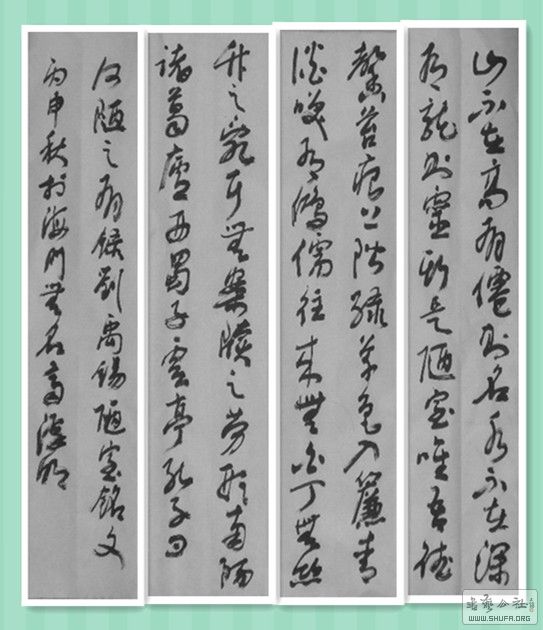 山不在高有僊則名水不在深
有龍則靈斯是陋室唯吾德
馨苔痕上階綠草色入簾青
談笑有鴻儒往來無白丁無絲
竹之亂耳無案牘之勞形南陽
諸葛廬西蜀子雲亭孔子曰
何陋之有錄劉禹錫陋室銘文
丙申秋於海門無名高明
公社
WWW.SHUFA.ORG